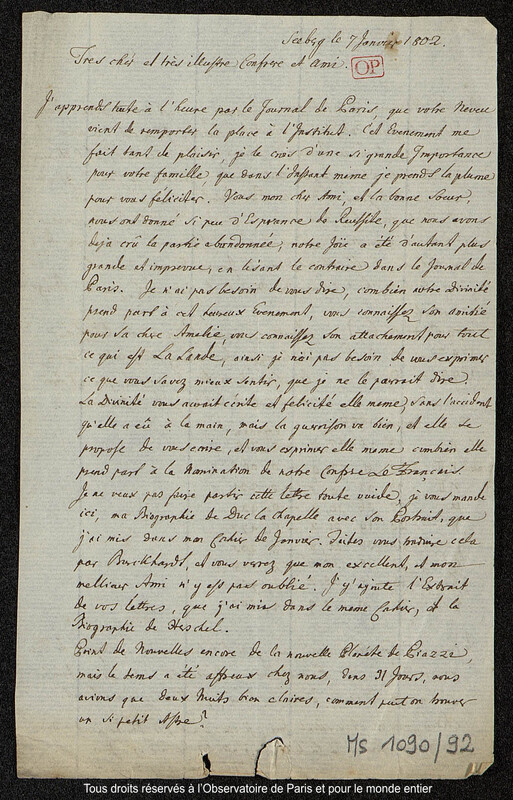 Seeberg le 7 Janvier 1802.
Tres chér et très illustre Confrere et Ami.
OP
J'apprends toute à l'heure par le Journal de Paris, que votre Neveu
vient de remporter la place à l'Institut. Cet Evenement me
fait tant de plaisir, je le crois d'une si grande Importance
pour votre famille, que dans l'Instant meme je prends la plume
pour vous féliciter. Vous mon cher Ami, et la bonne Soeur,
nous ont donné si peu d'Esperance de Reussite, que nous avons
deja cru la partie abandonnée; notre Joïe a été d'autant plus
grande et imprevue, en lisant le contraire dans le Journal de
Paris. Je n'ai pas besoin de vous dire, combien notre Divinité
prend part à cet heureux Evenement, vous connaissez son amitié
pour sa chere Amelie, vous connaissez son attachement pour tout
ce qui est La Lande, ainsi je n'ai pas besoin de vous exprimer
ce que vous savez mieux sentir, que je ne le pourrait dire.
La Divinité vous aurait écrite et felicité elle meme, sans l'accident
qu'elle a eû à la main, mais la guerison va bien, et elle se
propose de vous ecrire, et vous exprimer elle meme combien elle
prend part à la Nomination de notre Confrere Le Français.
Je ne veux pas faire partir cette lettre toute vuide, je vous mande
ici, ma Biographie de Duc la Chapelle avec son Portrait, que
j'ai mis dans mon Cahier de Janvier. Faites vous traduire cela
par Burckhardt, et vous verrez que mon excellent, et mon
meilleur Ami n'y est pas oublié. J'y ajoute l'Extrait
de vos lettres, que j'ai mis dans le meme Cahier, et la
Biographie de Herschel.
Point de Nouvelles encore de la nouvelle Planete de Piazzi,
mais le tems a été affreux chez nous, dans 31 Jours, nous
avions que deux Nuits bien claires, comment peut on trouver
un si petit Astre?
Ms 1090/92
Tous droits réservés à l'Observatoire de Paris et pour le monde entier